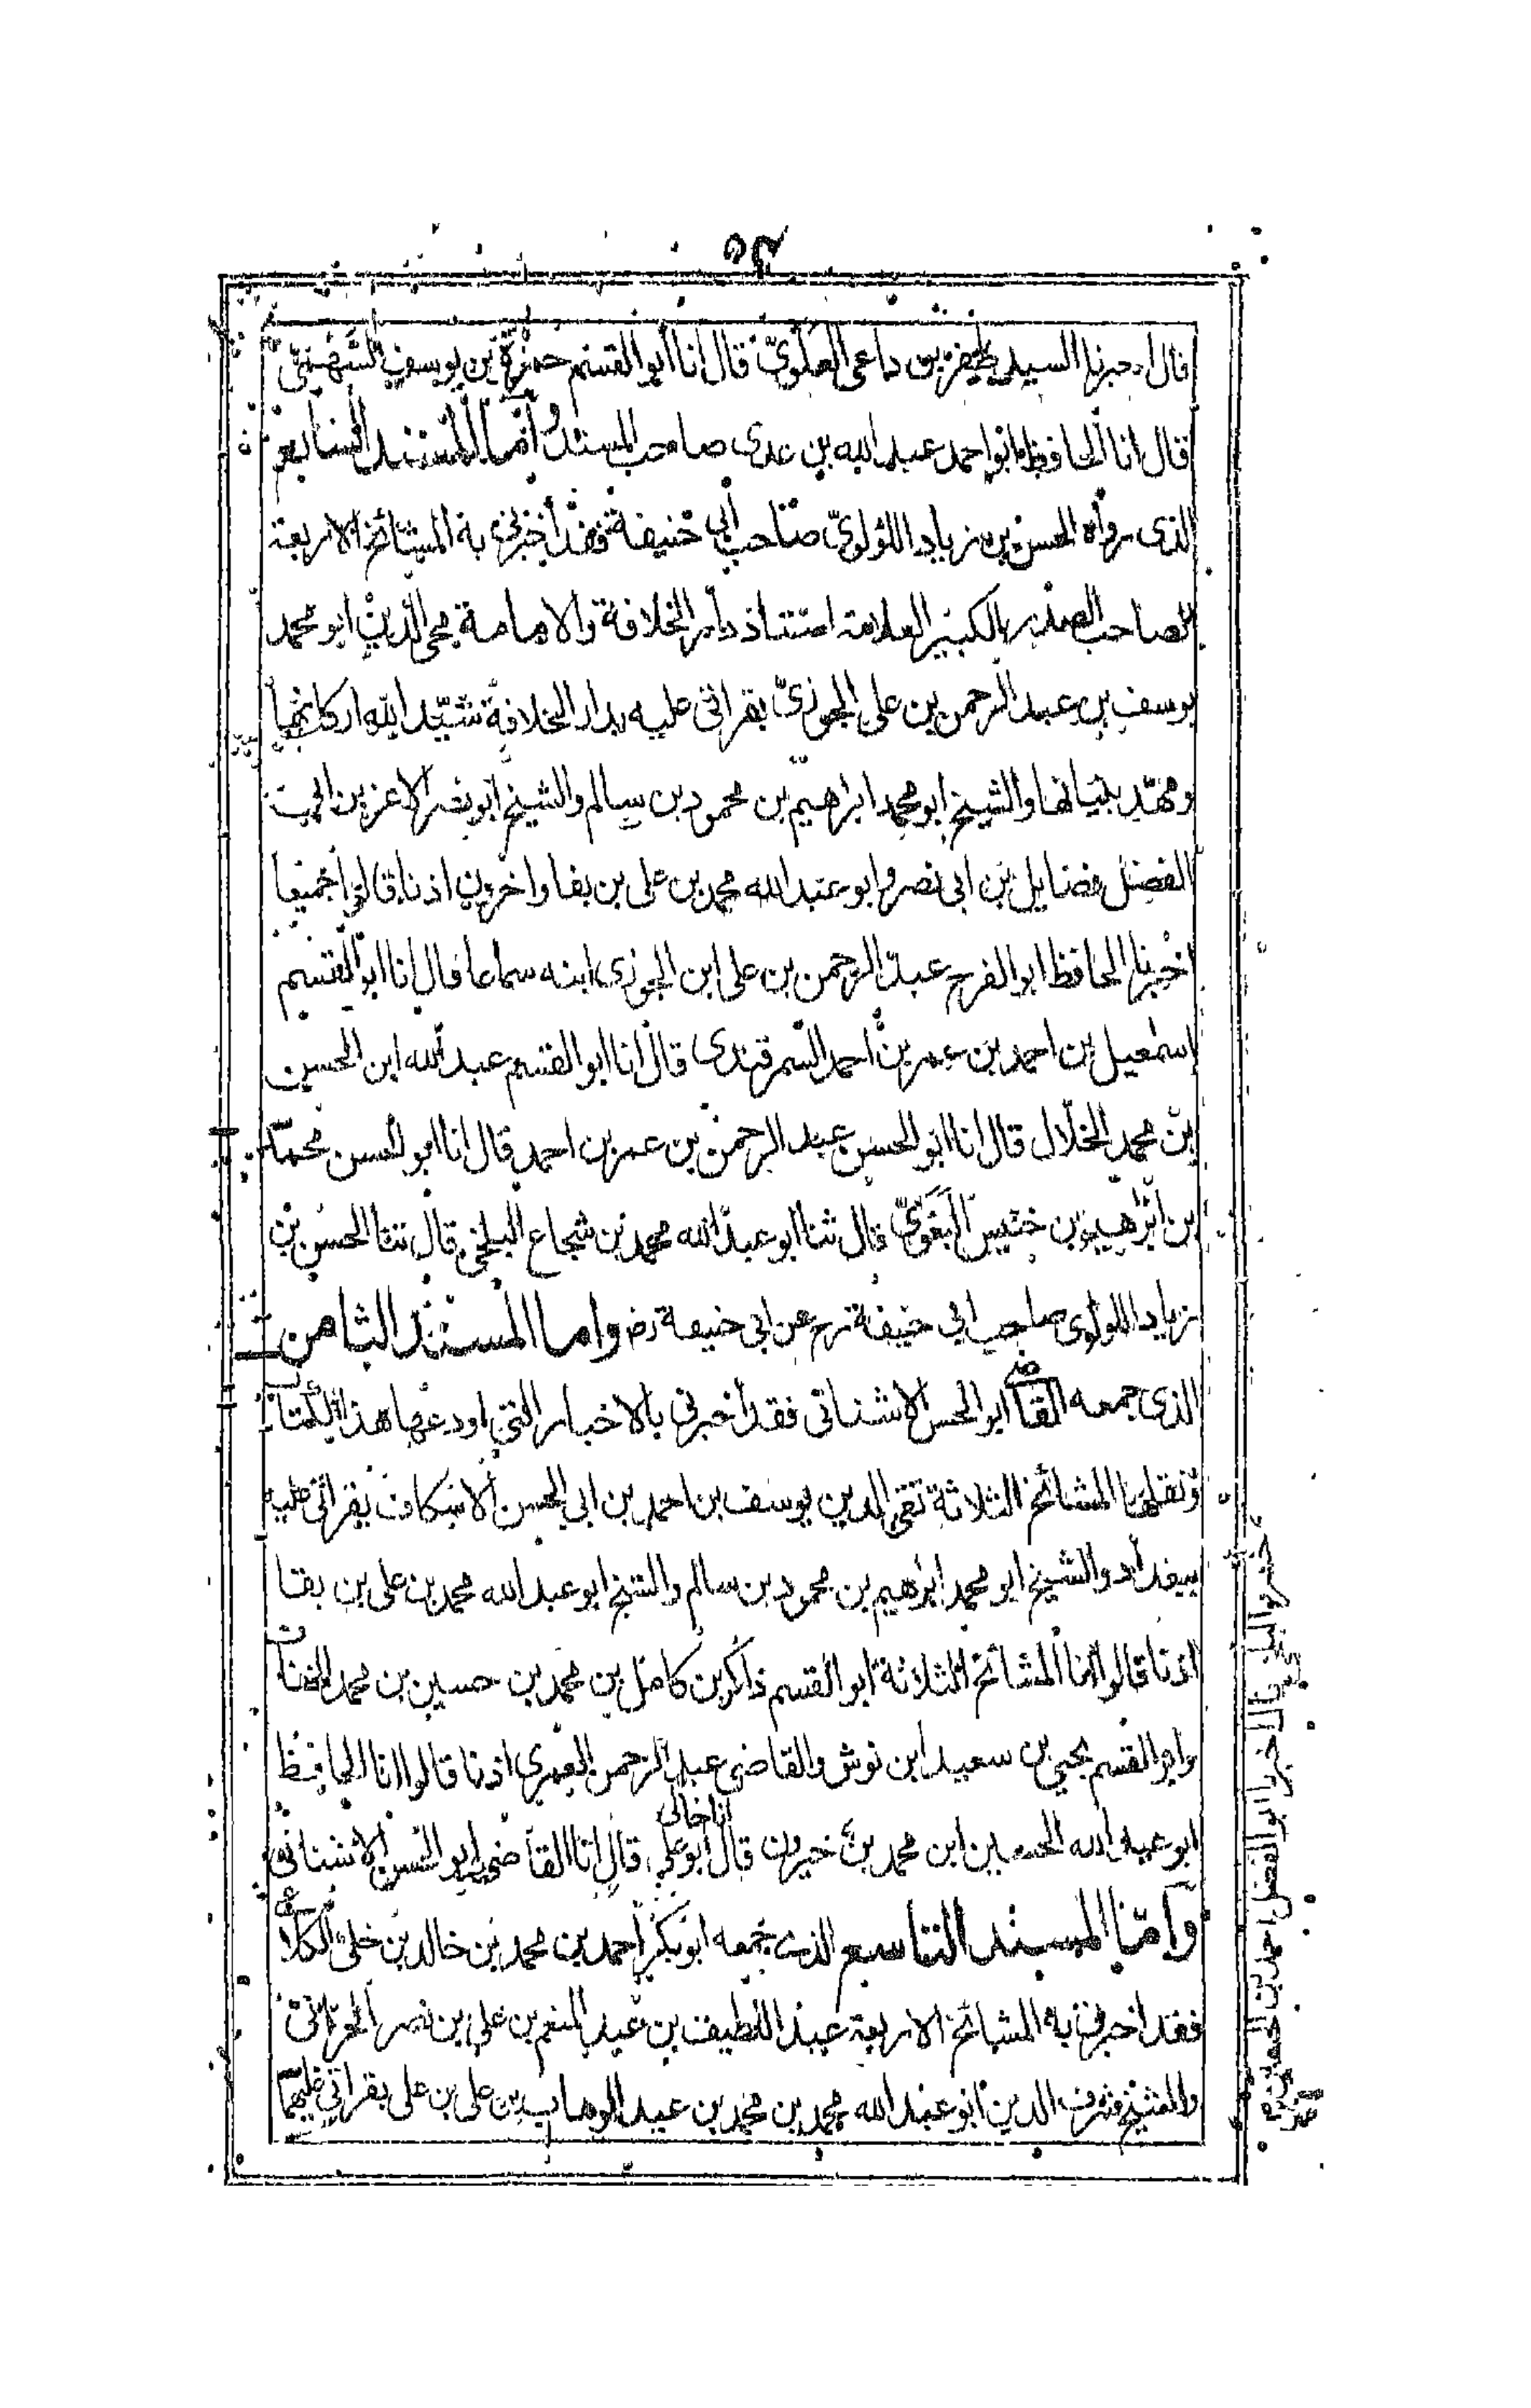 قال اخبرنا السيد ظفر بن داعى العلوىّ قال انا ابو القسم حمزة بن يوسف السهمىّ
قال انا الحافظ ابو احمد عبد الله بن عدى صاحب المسند وأمّا المسند السابع
الذى رواه الحسن بن زياد اللؤلوىّ صاحب أبى حنيفة فقد أخبرنى به المشائخ الاربعة
الصاحب الصدر الكبير العلامة استاذ دار الخلافة والامامة محى الدين ابو محمد
يوسف بن عبد الرحمن بن على الجوزىّ بقرائتى عليه بدار الخلافة شيّد الله اركانها
ومهّد بنيانها والشيخ ابو محمد ابراهيم بن محمود بن سالم والشيخ ابو نصر الاعز بن ابى
الفضل فضايل بن ابى نصر وابو عبد الله محمد بن على بن بقا واخرون اذنا قالوا جميعا
اخبرنا الحافظ ابو الفرج عبد الرحمن بن على ابن الجوزى ابنه سماعا قال انا ابو القسم
اسمعيل بن احمد بن عمر بن احمد السمرقندى قال انا ابو القسم عبد الله ابن الحسين
بن محمد الخلّال قال انا ابو الحسن عبد الرحمن بن عمر بن احمد قال انا ابو الحسن محمد
ابن ابرهيم بن خنيس البغوىّ قال ثنا ابو عبد الله محمد بن شجاع البلخى قال ثنا الحسن بن
زياد اللولوى صاحب ابى حنيفة رح عن ابى حنيفة رض واما المسند الثامن
الذى جمعه القاضى ابو الحسن الاشنانى فقد أخبرنى بالاخبار التى اودعها هذا الكتاب
ونقلها المشائخ الثلاثة تقى الدين يوسف بن احمد بن ابى الحسن الاسكاف بقرائتى عليه
ببغداد والشيخ ابو محمد ابرهيم بن محمود بن سالم والشيخ ابو عبد الله محمد بن على بن بقا
اذنا قالوا انا المشائخ الثلاثة ابو القسم ذاكر بن كامل بن محمد بن حسين بن محمد الخفاف
وابو القسم يحيى بن سعيد ابن نوش والقاضى عبد الرحمن العمرى اذنا قالوا انا الحافظ
ابو عبد الله الحسين ابن محمد بن خيرون قال انا خالى ابو على قال انا القاضى ابو الحسن الاشنانى
وأمّا المسند التاسع الذى جمعه ابو بكر احمد بن محمد بن خالد بن خلى الكلاعى
فقد اخبرنى به المشائخ الاربعة عبد اللطيف بن عبد المنعم بن على بن نصر الحرّانىّ
والشيخ شرف الدين ابو عبد الله محمد بن محمد بن محمد بن عبد الوهاب بن على بن على بقرائتى عليهما
خسرو البلخى قال اخبرنا ابو الفضل احمد بن الحسين بن